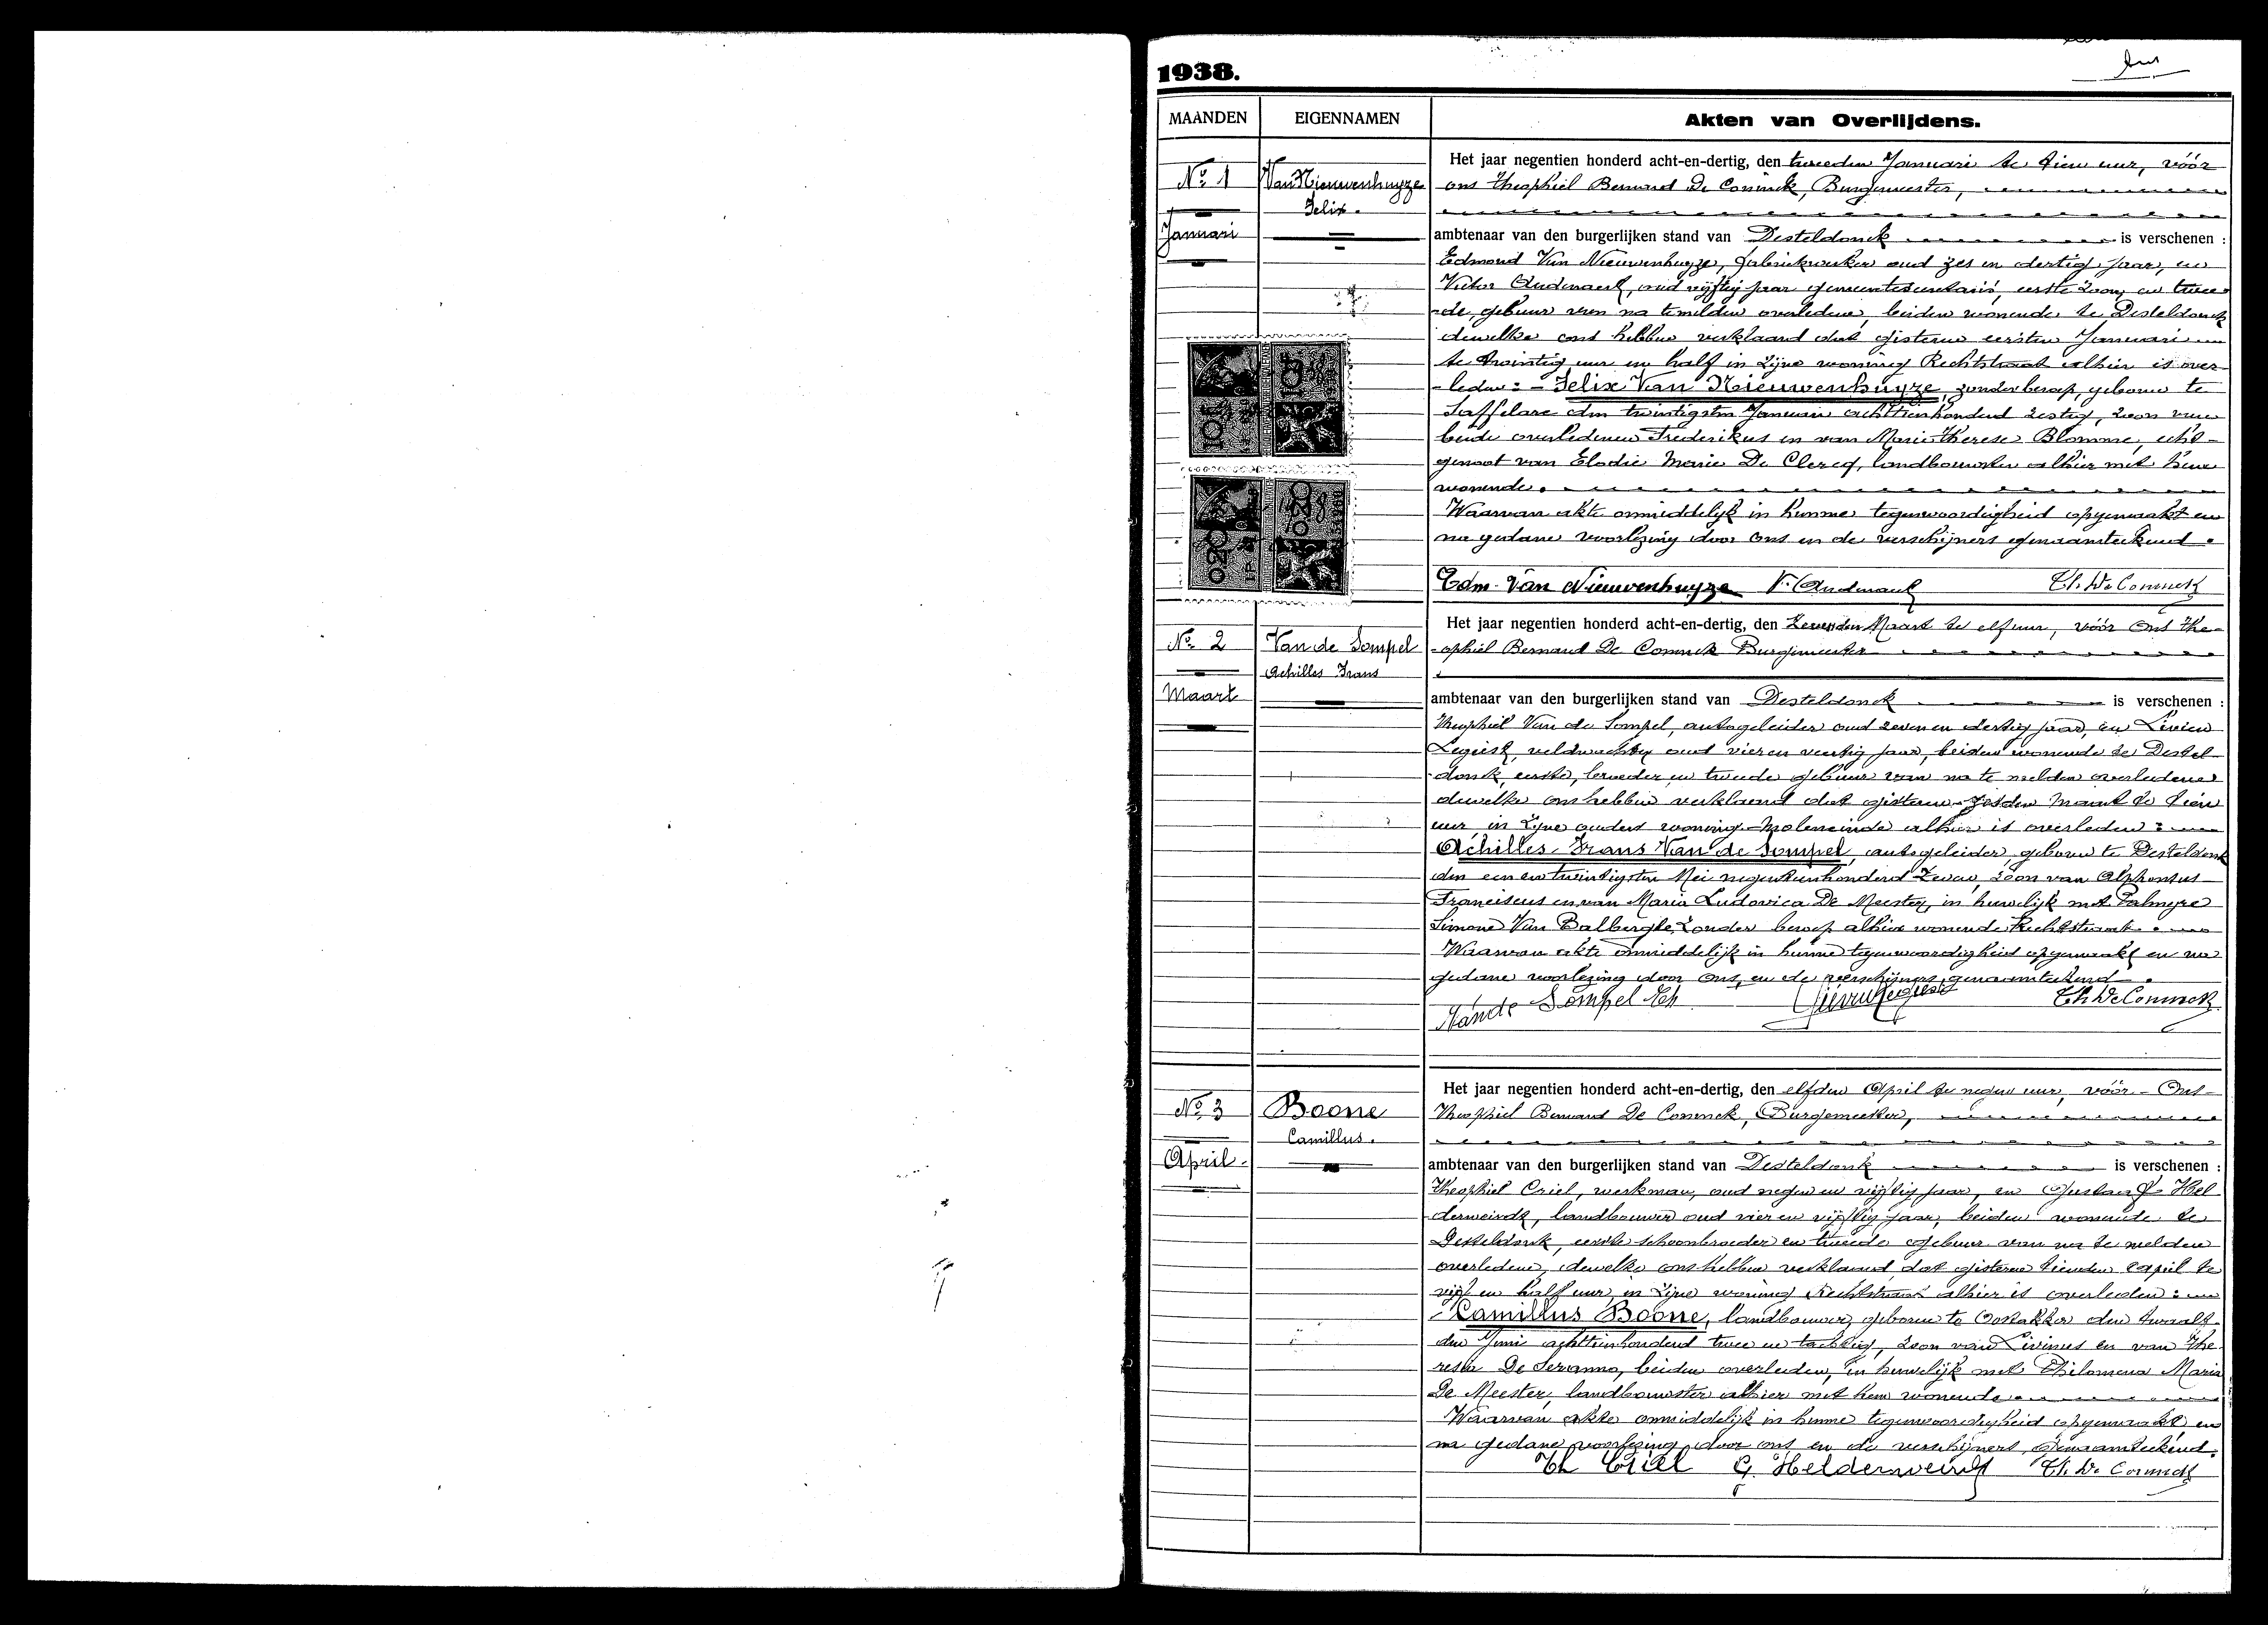 1938.
MAANDEN EIGENNAMEN Akten van Overlijdens.
Nº 1
Januari
Van Nieuwenhuyze
Felix.
Het jaar negentien honderd acht-en-dertig, den tweeden Januari te tien uur, vóór
ons Theophiel Bernard De Coninck, Burgemeester,
ambtenaar van den burgerlijken stand van Desteldonck is verschenen :
Edmond Van Nieuwenhuyze, fabriekwerker oud zes en dertig jaar, en
Victor Audenaert, oud vijftig jaar gemeentesecretaris, eerste zoon, en twee-
-de, gebuur van na temelden overledene, beiden wonende te Desteldonck
dewelke ons hebben verklaard dat gisteren eersten Januari
te twintig uur en half in zijne woning Rechtstraat alhier is over-
-leden: - Felix Van Nieuwenhuyze, zonder beroep, geboren te
Saffelare den twintigsten Januari achttienhonderd zestig, zoon van
beide overledenen Frederikus en van Marie Therese Blomme, echt-
genoot van Elodie Marie De Clercq, landbouwster alhier met hem
wonende.
Waarvan akte onmiddelijk in hunne tegenwoordigheid opgemaakt en
na gedane voorlezing door ons en de verschijners genaamteekend.
Edm. Van Nieuwenhuyze V. Audenaert Th. De Coninck
Nº 2
Maart
Van de Sompel
Achilles Frans
Het jaar negentien honderd acht-en-dertig, den Zevenden Maart te elf uur, vóór Ons The-
-ophiel Bernard De Coninck Burgemeester
ambtenaar van den burgerlijken stand van Desteldonck is verschenen :
Theophiel Van de Sompel, autogeleider oud zeven en dertig jaar, en Livien
Legiest, veldwachter oud vier en veertig jaar, beiden wonende te Destel-
-donck, eerste, broeder en tweede gebuur van na te melden overledene
dewelke ons hebben verklaard dat gisteren zesden Maart te tien
uur in zijne ouders woning Moleneinde alhier is overleden :
Achilles Frans Van de Sompel, autogeleider, geboren te Desteldonk
den een en twintigsten Mei negentienhonderd twee, zoon van Alphonsus
Franciscus en van Maria Ludovica De Meester, in huwelijk met Palmyre
Simone Van Balberghe, zonder beroep alhier wonende Rechtstraat.
Waarvan akte onmiddelijk in hunne tegenwoordigheid opgemaakt en na
gedane voorlezing door ons, en de verschijners genaamteekend.
Van de Sompel Th Lievin Legiest Th. De Coninck
Nº 3
April.
Boone
Camillus.
Het jaar negentien honderd acht-en-dertig, den elfden April te negen uur, vóór - Ons -
Theophiel Bernard De Coninck, Burgemeester,
ambtenaar van den burgerlijken stand van Desteldonk is verschenen :
Theophiel Criel, werkman, oud negen en vijftig jaar, en Gustaaf Hel-
derweirdt, landbouwer oud vier en vijftig jaar, beiden wonende te
Desteldonk, eerste schoonbroeder en tweede gebuur van na te melden
overledene, dewelke ons hebben verklaard dat gisteren tienden April te
vijf en half uur, in zijne woning Rechtstraat alhier is overleden :
- Camillus Boone, landbouwer, geboren te Oostakker den twaalf-
den Juni achttienhonderd twee en tachtig, zoon van Livinus en van The-
resia De Seranno, beiden overleden, in huwelijk met Philomena Maria
De Meester, landbouwster alhier met hem wonende
Waarvan akte onmiddelijk in hunne tegenwoordigheid opgemaakt, en
na gedane voorlezing door ons en de verschijners, genaamteekend.
Th Criel G. Helderweirdt Th. De Coninck